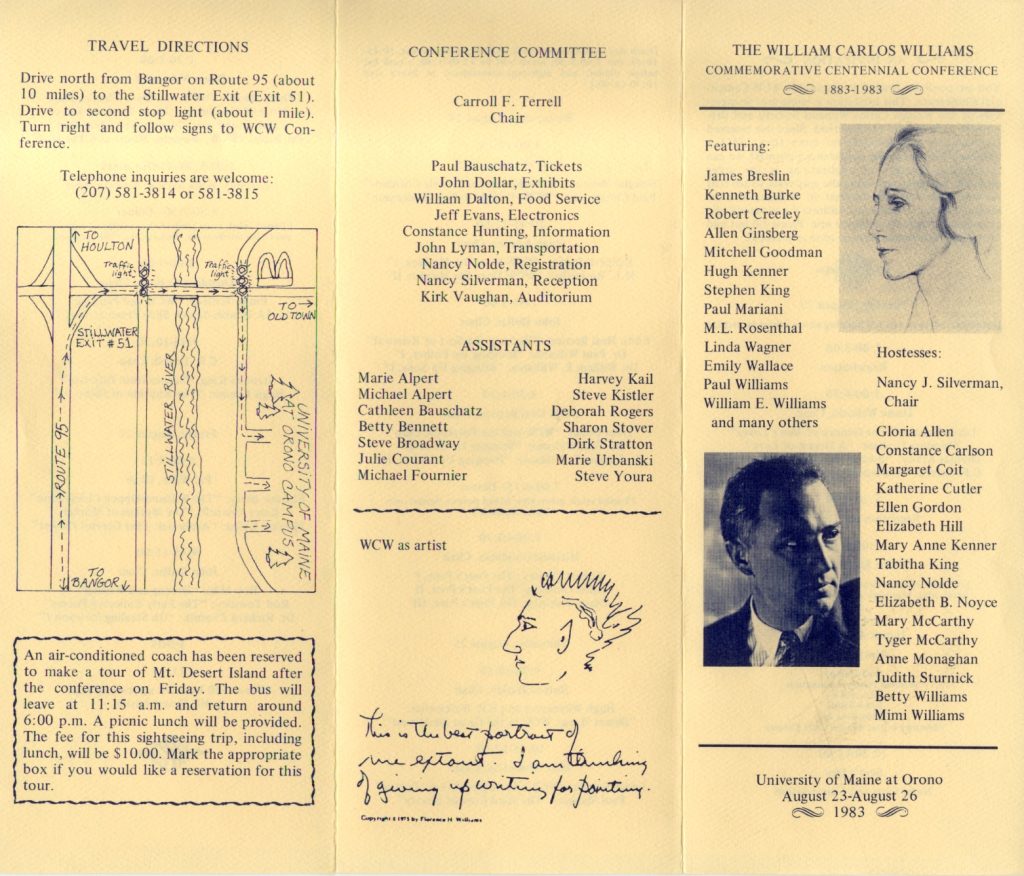 TRAVEL DIRECTIONS
Drive north from Bangor on Route 95 (about
10 miles) to the Stillwater Exit (Exit 51).
Drive to second stop light (about 1 mile).
Turn right and follow signs to WCW Con-
ference.
Telephone inquiries are welcome:
(207) 581-3814 or 581-3815
TO
HOULTON
Traffic
light
Traffic
light
TO
OLD TOWN
STILLWATER
EXIT #51
ROUTE 95
STILLWATER RIVER
UNIVERSITY OF MAINE
AT ORONO CAMPUS
TO
BANGOR
An air-conditioned coach has been reserved
to make a tour of Mt. Desert Island after
the conference on Friday. The bus will
leave at 11:15 a.m. and return around
6:00 p.m. A picnic lunch will be provided.
The fee for this sightseeing trip, including
lunch, will be $10.00. Mark the appropriate
box if you would like a reservation for this
tour.
CONFERENCE COMMITTEE
Carroll F. Terrell
Chair
Paul Bauschatz, Tickets
John Dollar, Exhibits
William Dalton, Food Service
Jeff Evans, Electronics
Constance Hunting, Information
John Lyman, Transportation
Nancy Nolde, Registration
Nancy Silverman, Reception
Kirk Vaughan, Auditorium
ASSISTANTS
Marie Alpert
Michael Alpert
Cathleen Bauschatz
Betty Bennett
Steve Broadway
Julie Courant
Michael Fournier
Harvey Kail
Steve Kistler
Deborah Rogers
Sharon Stover
Dirk Stratton
Marie Urbanski
Steve Youra
WCW as artist
This is the best portrait of
me extant. I am thinking
of giving up writing for painting.
Copyright © 1975 by Florence H. Williams
THE WILLIAM CARLOS WILLIAMS
COMMEMORATIVE CENTENNIAL CONFERENCE
1883-1983
Featuring:
James Breslin
Kenneth Burke
Robert Creeley
Allen Ginsberg
Mitchell Goodman
Hugh Kenner
Stephen King
Paul Mariani
M.L. Rosenthal
Linda Wagner
Emily Wallace
Paul Williams
William E. Williams
and many others
Hostesses:
Nancy J. Silverman,
Chair
Gloria Allen
Constance Carlson
Margaret Coit
Katherine Cutler
Ellen Gordon
Elizabeth Hill
Mary Anne Kenner
Tabitha King
Nancy Nolde
Elizabeth B. Noyce
Mary McCarthy
Tyger McCarthy
Anne Monaghan
Judith Sturnick
Betty Williams
Mimi Williams
University of Maine at Orono
August 23-August 26
1983